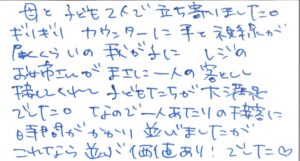 母と子ども2人で立ち寄りました。
ぎりぎり カウンターに手と視線が
届くくらいの我が子に レジの
お姉さんがまエに一人の客として
接してくれて 子どもたちが大満足
でした。 なので一人あたりの接客に
時間がかかり並びましたが
これなら並ぶ価値あり! でした♡